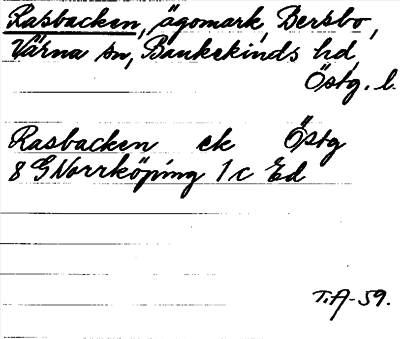 Rasbacken, ägomark, Bersbo,
Värna sn, Bankekinds hd,
Östg. l.
Rasbacken ek Östg
8 G Norrköping 1 c Ed
T.A-59.